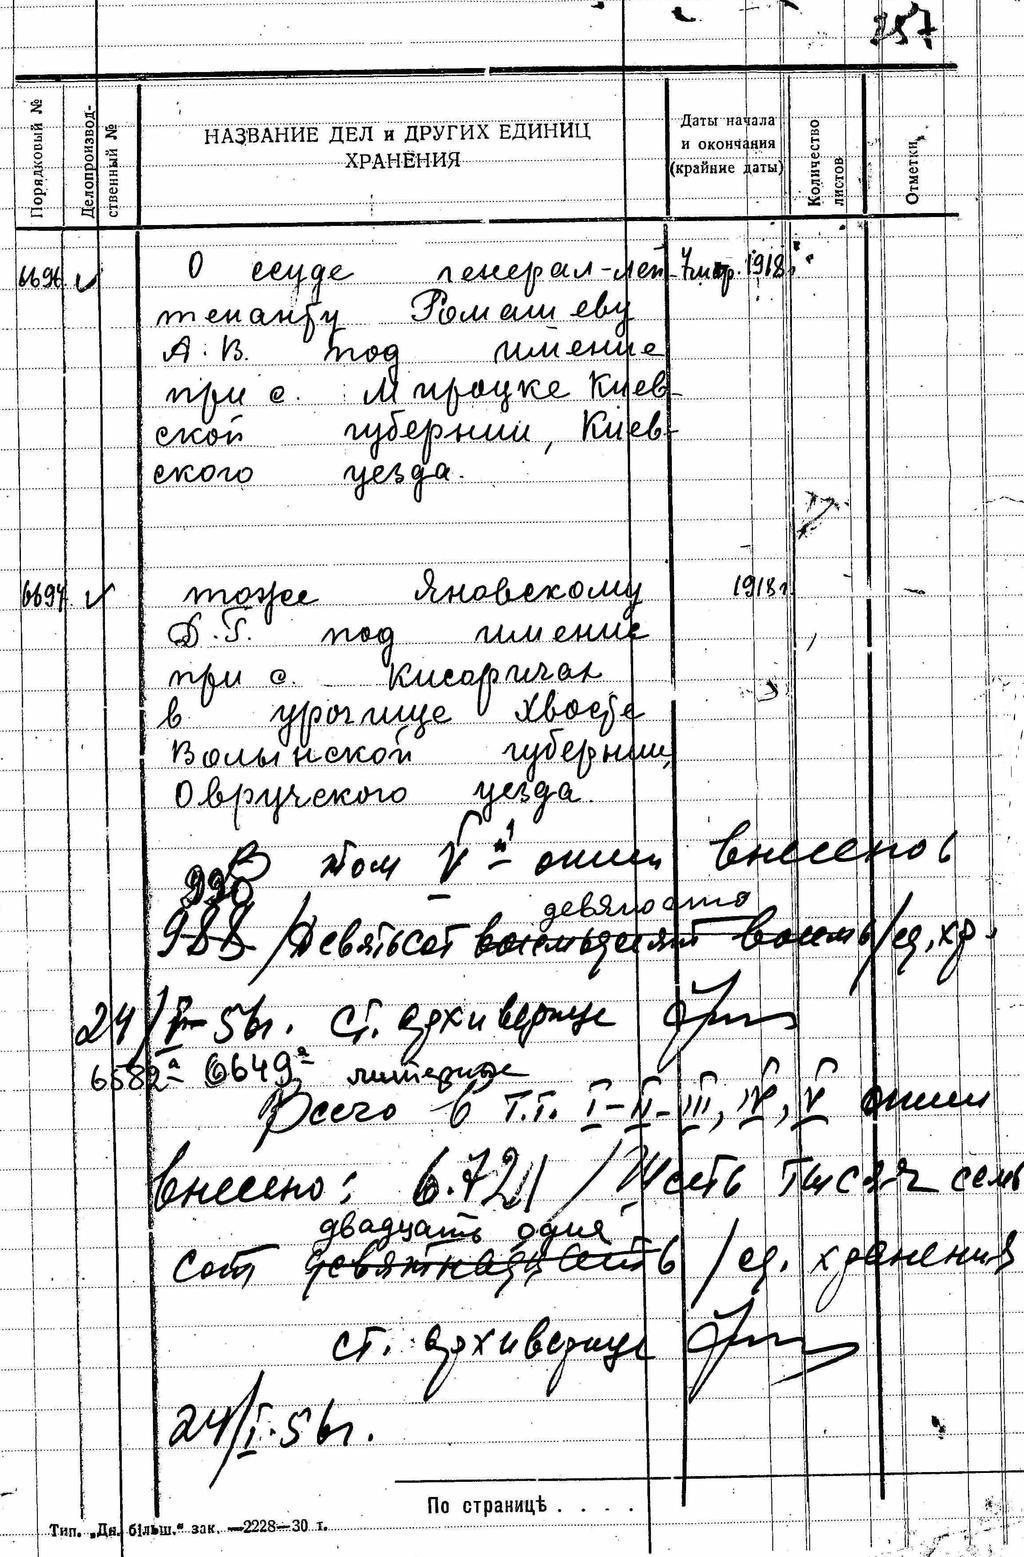 257
Порядковый №
Делопроизвод-
ственный №
НАЗВАНИЕ ДЕЛ и ДРУГИХ ЕДИНИЦ
ХРАНЕНИЯ
Даты начала
и окончания
(крайние даты)
Количество
листов
Отметки
6696 О ссуде генерал-лей- 1918
тенанту Ромашеву
А. В. под имение
при с. Мироцке Киев-
ской губернии, Киев-
ского уезда.
6697 тоже Яновскому 1918г
Д. Г. под имение
при с. Кисоричах
в урочище Хвосте
Волынской губернии,
Овручского уезда.
В том V описи внесено
990 девяносто
988 /Девятьсот восемьдесят восемь/ ед. хр.
24/I-56г. ст. архиверище
6582а 6649а литерные
Всего в т.т. I-II-III, IV, V описи
внесено: 6.721 /Шесть тысяч семь
двадцать одна
сот девятнадцать/ ед. хранения
ст. архиверище
24/I-56г.
По страницѣ . . . .
Тип. „Дн. більш.“ зак. —2228—30 г.